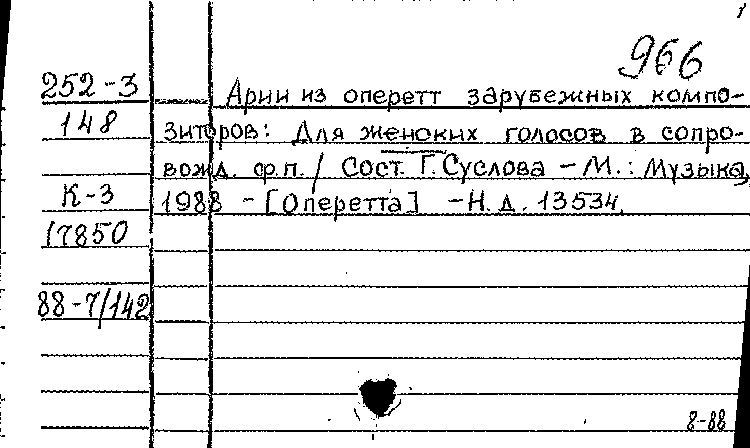 966
252-3
148
К-3
17850
88-7/142
Арии из оперетт зарубежных компо-
зиторов: Для женских голосов в сопро-
вожд. ф.п. / Сост. Г. Суслова – М.: Музыка,
1988 – [Оперетта] – Н.д. 13534.
8-88